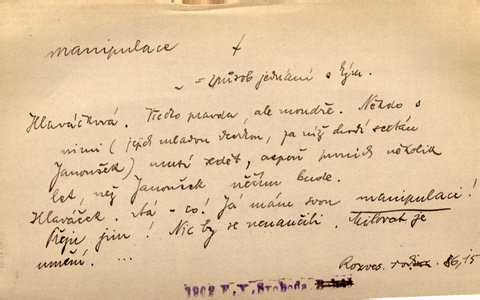 manipulace +
„ = způsob jednání s kým.
Hlaváčková. Těžko pravda, ale mondře. Někdo s
nimi ( jejich mladou dcerkou, za níž chodí
Janoušek) musí sedět, aspoň prvních několik
let, než Janoušek něčím bude.
Hlaváček. Ná – co! Já mám svou manipulaci!
Přeju jim! Nic by se nenaučili. Milovat je
umění. ...
Rozves. 86, 15
1902 F. V. Svoboda